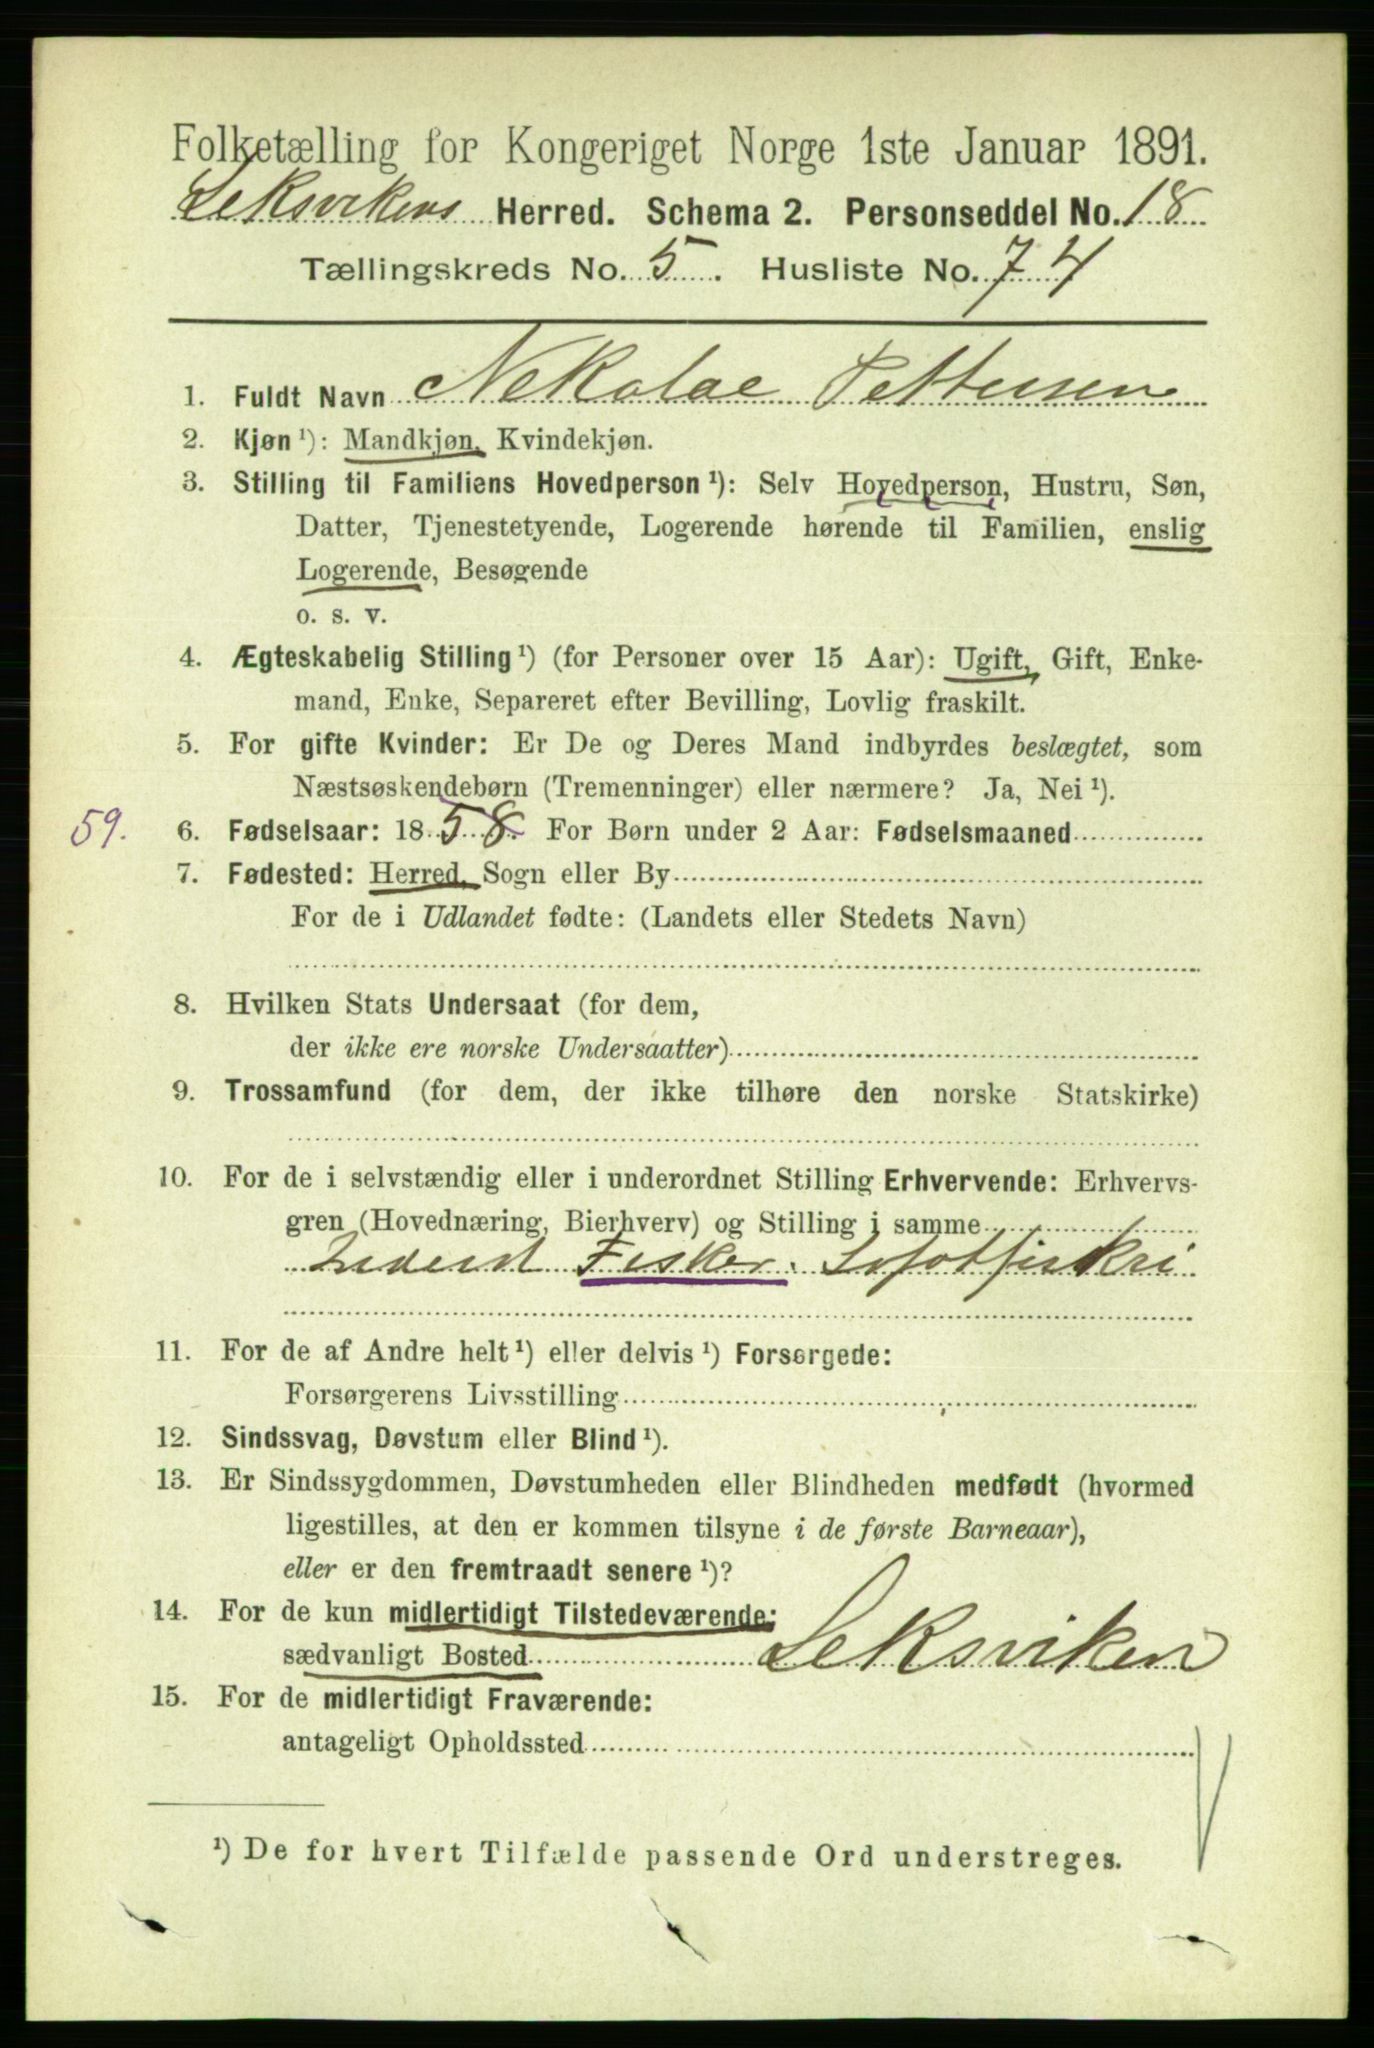 Folketælling for Kongeriget Norge 1ste Januar 1891.
Leksvikens Herred. Schema 2. Personseddel No. 18
Tællingskreds No. 5. Husliste No. 74
1. Fuldt Navn Nekolae Pettersen
2. Kjøn ¹): Mandkjøn, Kvindekjøn.
3. Stilling til Familiens Hovedperson ¹): Selv Hovedperson, Hustru, Søn,
Datter, Tjenestetyende, Logerende hørende til Familien, enslig
Logerende, Besøgende
o. s. v.
4. Ægteskabelig Stilling ¹) (for Personer over 15 Aar): Ugift, Gift, Enke-
mand, Enke, Separeret efter Bevilling, Lovlig fraskilt.
5. For gifte Kvinder: Er De og Deres Mand indbyrdes beslægtet, som
Næstsøskendebørn (Tremenninger) eller nærmere? Ja, Nei ¹).
59. 6. Fødselsaar: 1858. For Børn under 2 Aar: Fødselsmaaned
7. Fødested: Herred, Sogn eller By
For de i Udlandet fødte: (Landets eller Stedets Navn)
8. Hvilken Stats Undersaat (for dem,
der ikke ere norske Undersaatter)
9. Trossamfund (for dem, der ikke tilhøre den norske Statskirke)
10. For de i selvstændig eller i underordnet Stilling Erhvervende: Erhvervs-
gren (Hovednæring, Bierhverv) og Stilling i samme
Fisker. Lofotfiskri
11. For de af Andre helt ¹) eller delvis ¹) Forsørgede:
Forsørgerens Livsstilling
12. Sindssvag, Døvstum eller Blind ¹).
13. Er Sindssygdommen, Døvstumheden eller Blindheden medfødt (hvormed
ligestilles, at den er kommen tilsyne i de første Barneaar),
eller er den fremtraadt senere ¹)?
14. For de kun midlertidigt Tilstedeværende:
sædvanligt Bosted Leksviken
15. For de midlertidigt Fraværende:
antageligt Opholdssted
¹) De for hvert Tilfælde passende Ord understreges.